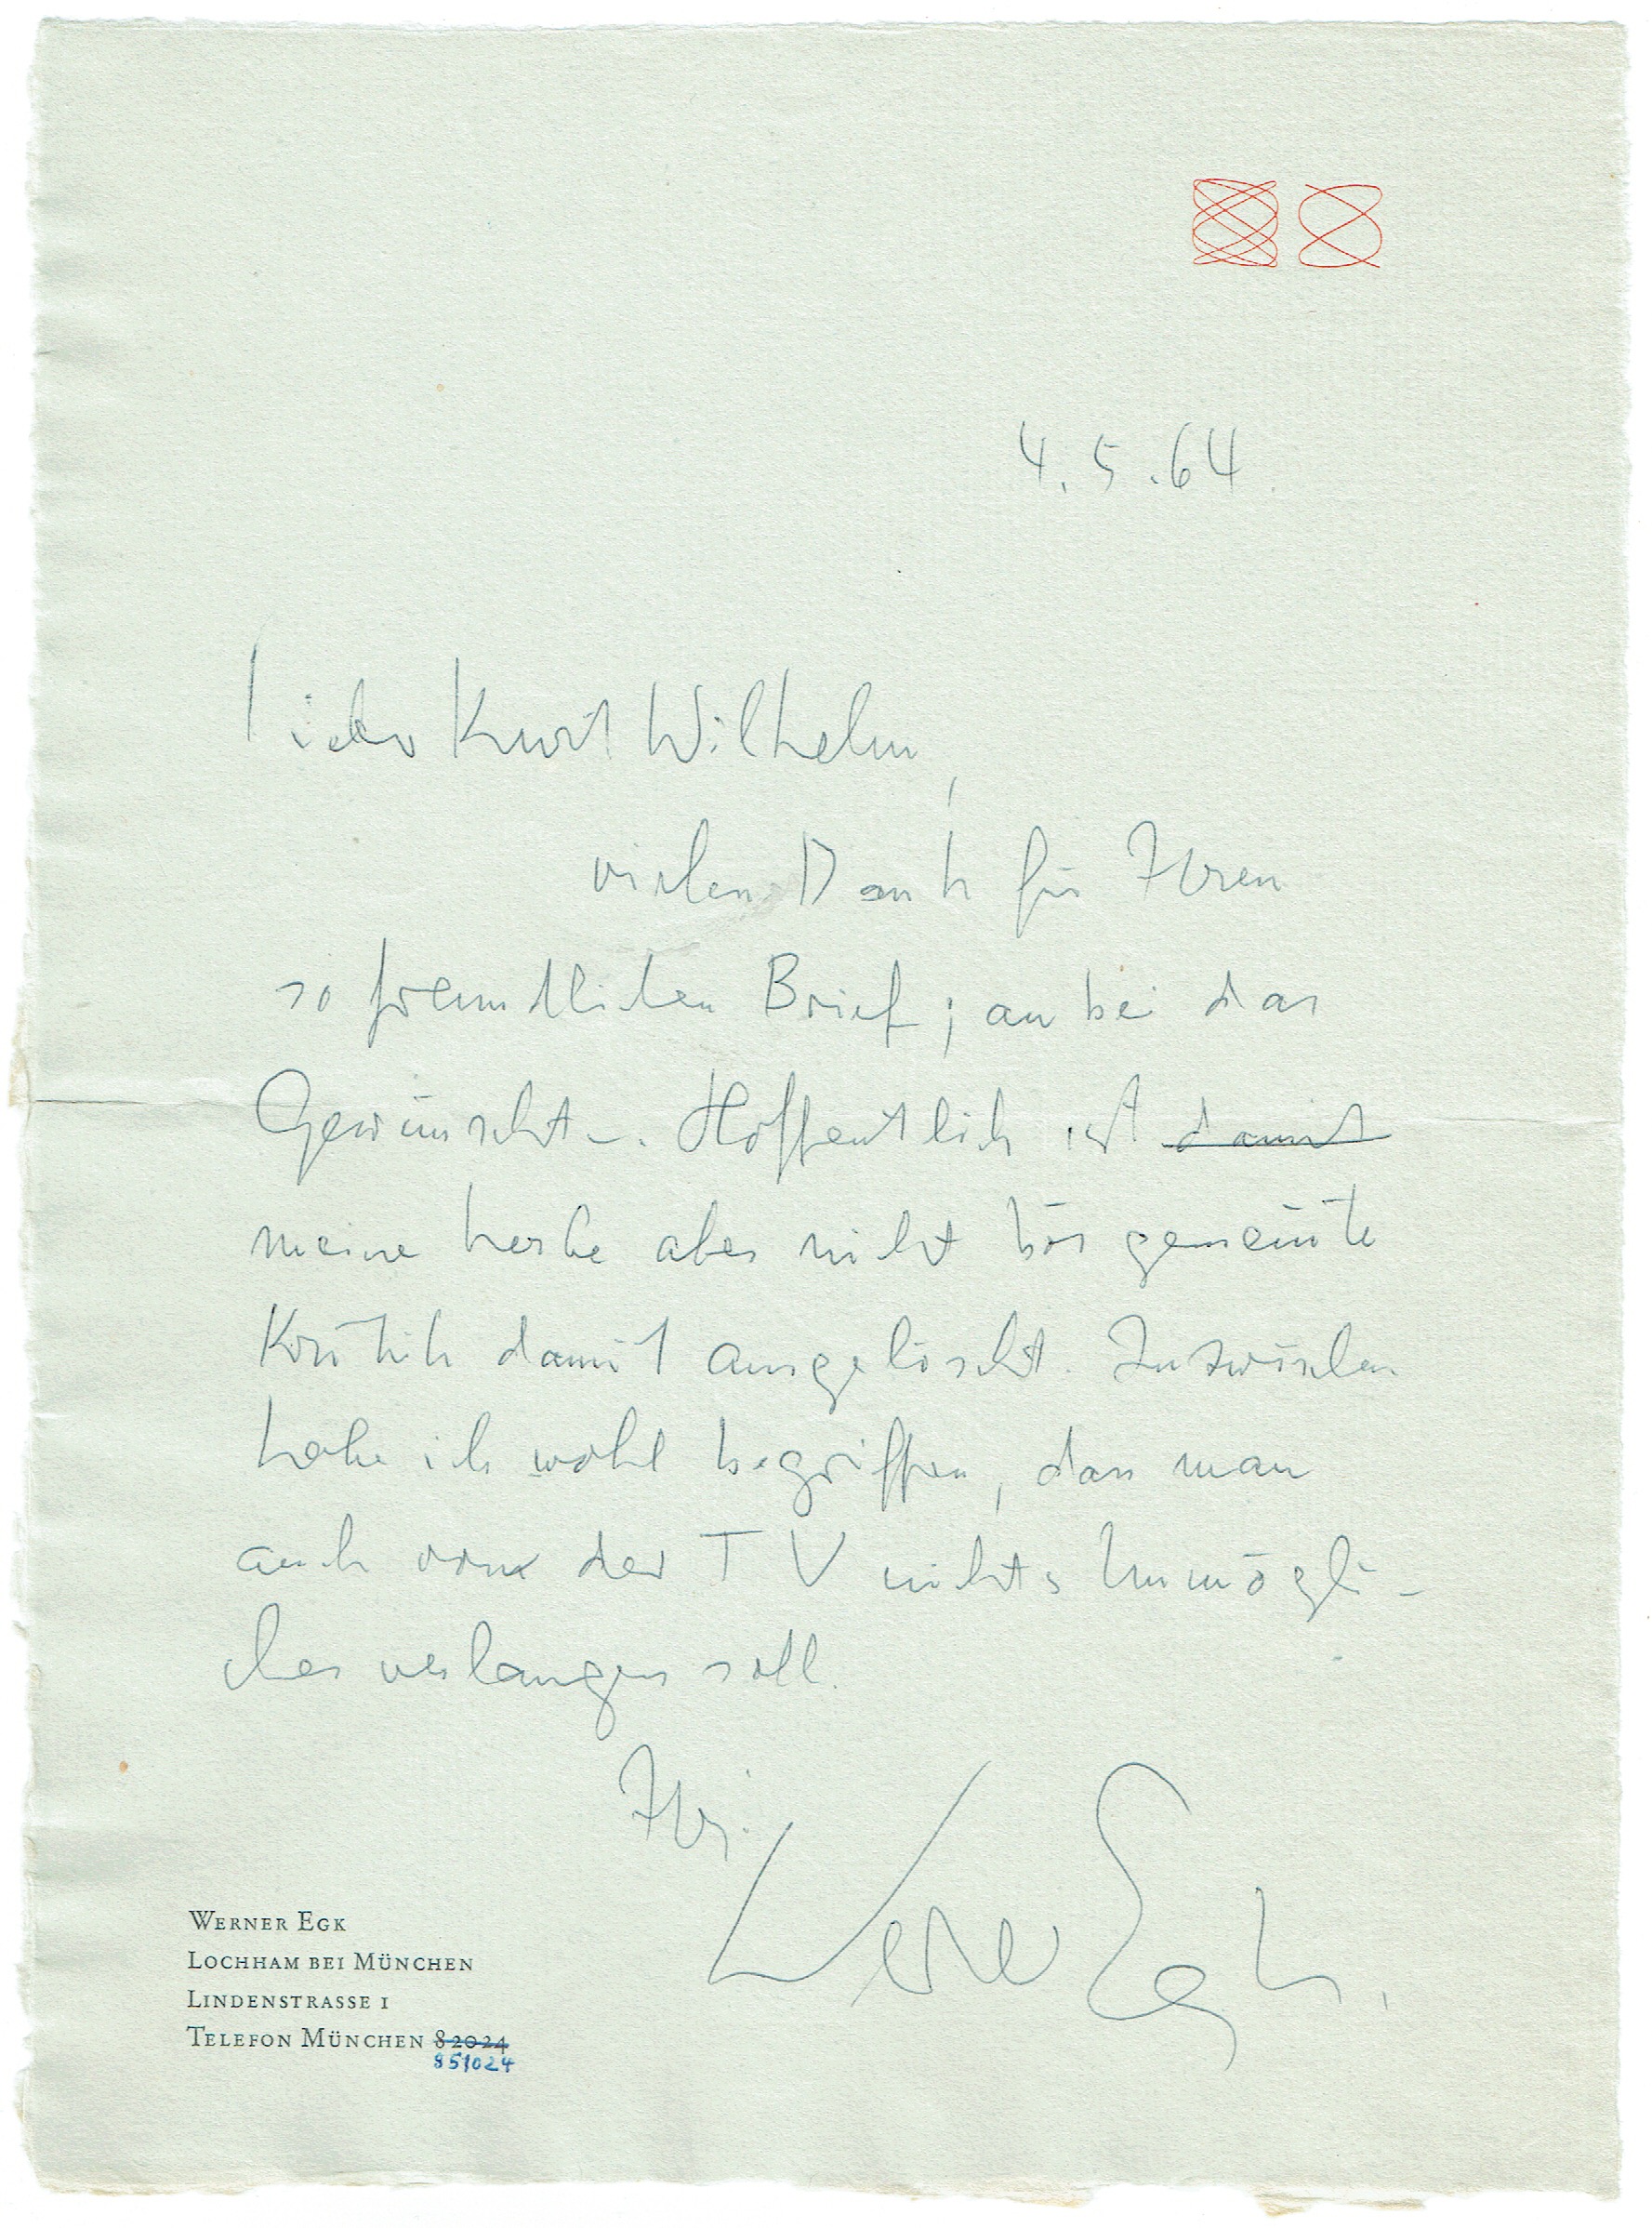 4.5.64.
Lieber Kurt Wilhelm,
vielen Dank für Ihren
so freundlichen Brief; anbei das
Gewünschte. Hoffentlich ist damit
meine herbe aber nicht bös gemeinte
Kritik damit ausgelöscht. Inzwischen
habe ich wohl begriffen, dass man
auch von der TV nichts Unmögli-
ches verlangen soll.
Ihr
Werner Egk.
WERNER EGK
LOCHHAM BEI MÜNCHEN
LINDENSTRASSE 1
TELEFON MÜNCHEN 82024
851024